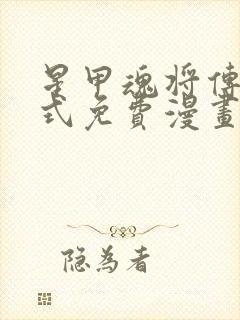 星甲魂将傳
式免費漫畫
隐为者